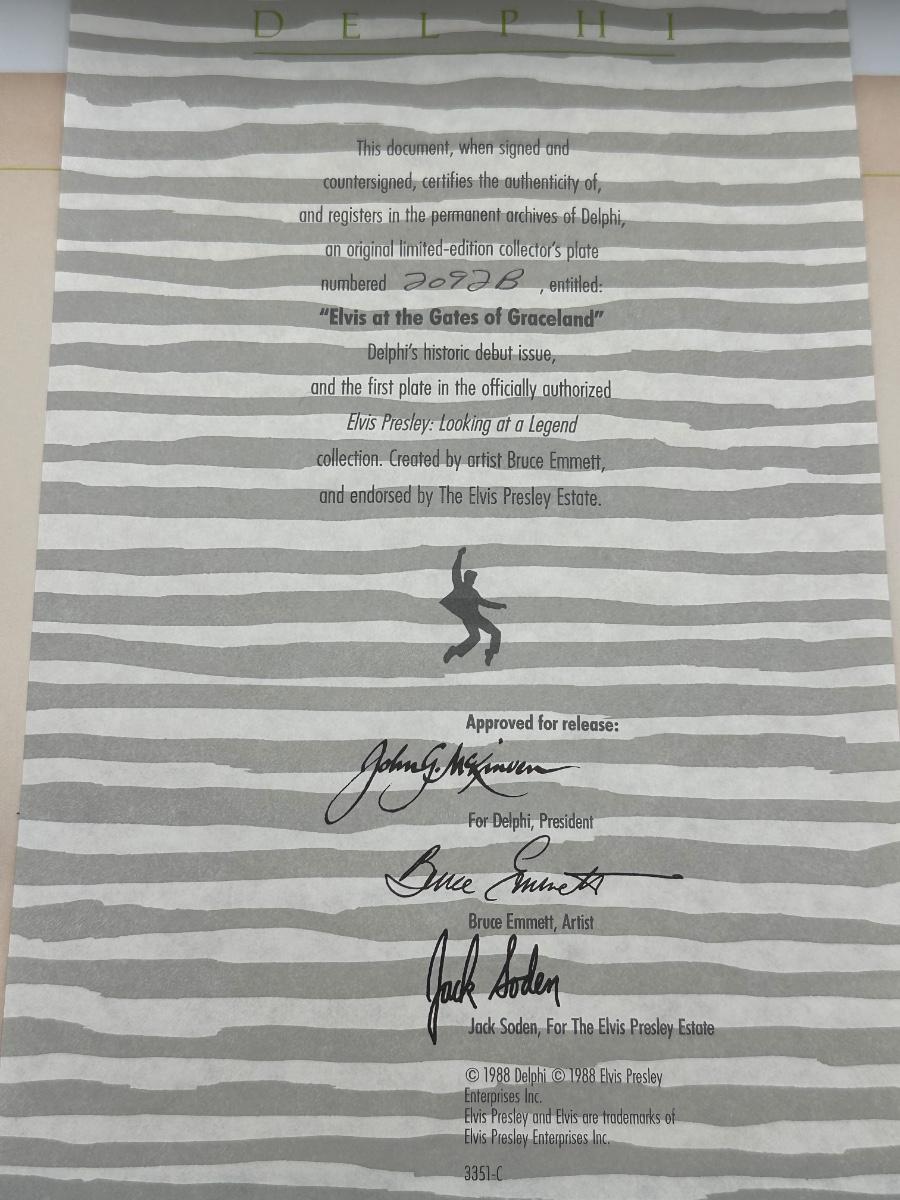 DELPHI
This document, when signed and
countersigned, certifies the authenticity of,
and registers in the permanent archives of Delphi,
an original limited-edition collector's plate
numbered 2092B , entitled:
"Elvis at the Gates of Graceland"
Delphi's historic debut issue,
and the first plate in the officially authorized
Elvis Presley: Looking at a Legend
collection. Created by artist Bruce Emmett,
and endorsed by The Elvis Presley Estate.
Approved for release:
John G. McKinven
For Delphi, President
Bruce Emmett
Bruce Emmett, Artist
Jack Soden
Jack Soden, For The Elvis Presley Estate
© 1988 Delphi © 1988 Elvis Presley
Enterprises Inc.
Elvis Presley and Elvis are trademarks of
Elvis Presley Enterprises Inc.
3351-C